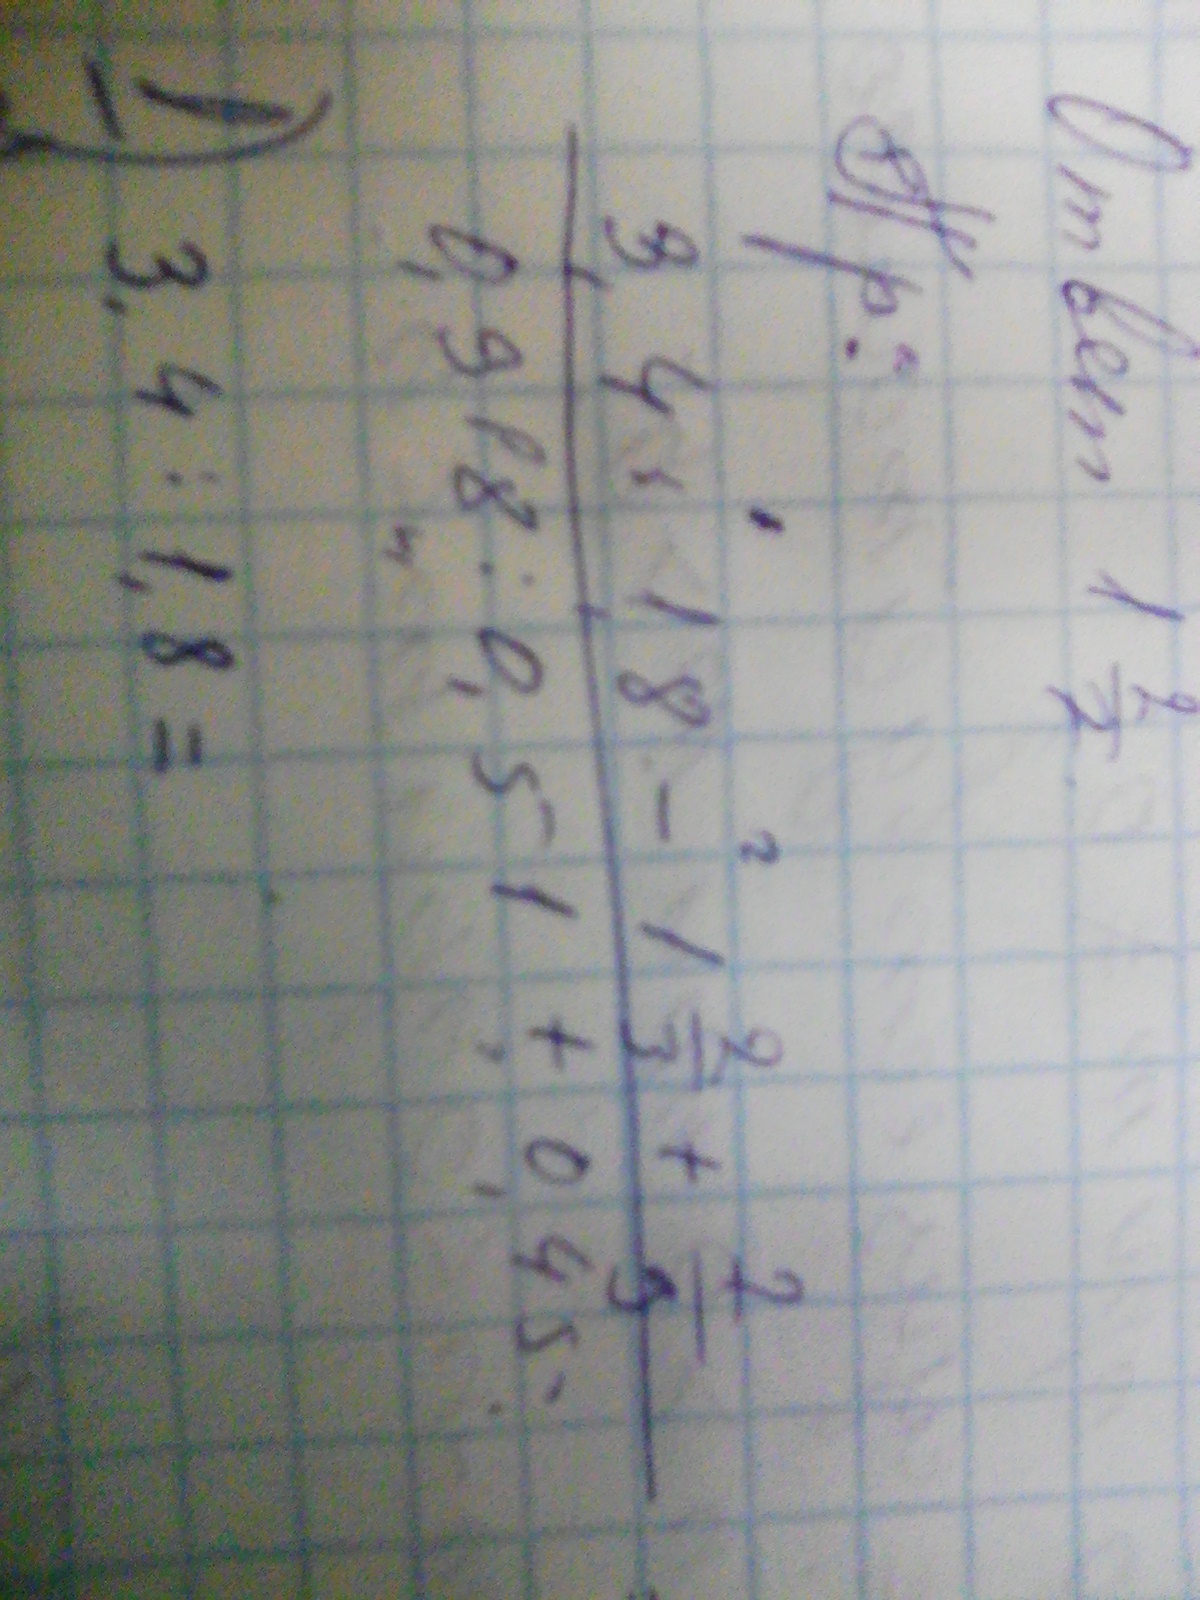 Ответ 1 2/2
Пр:
3,4 : 1,8 - 1 2/3 + 7/9
0,918 : 0,5 - 1 + 0,45
1) 3,4 : 1,8 =